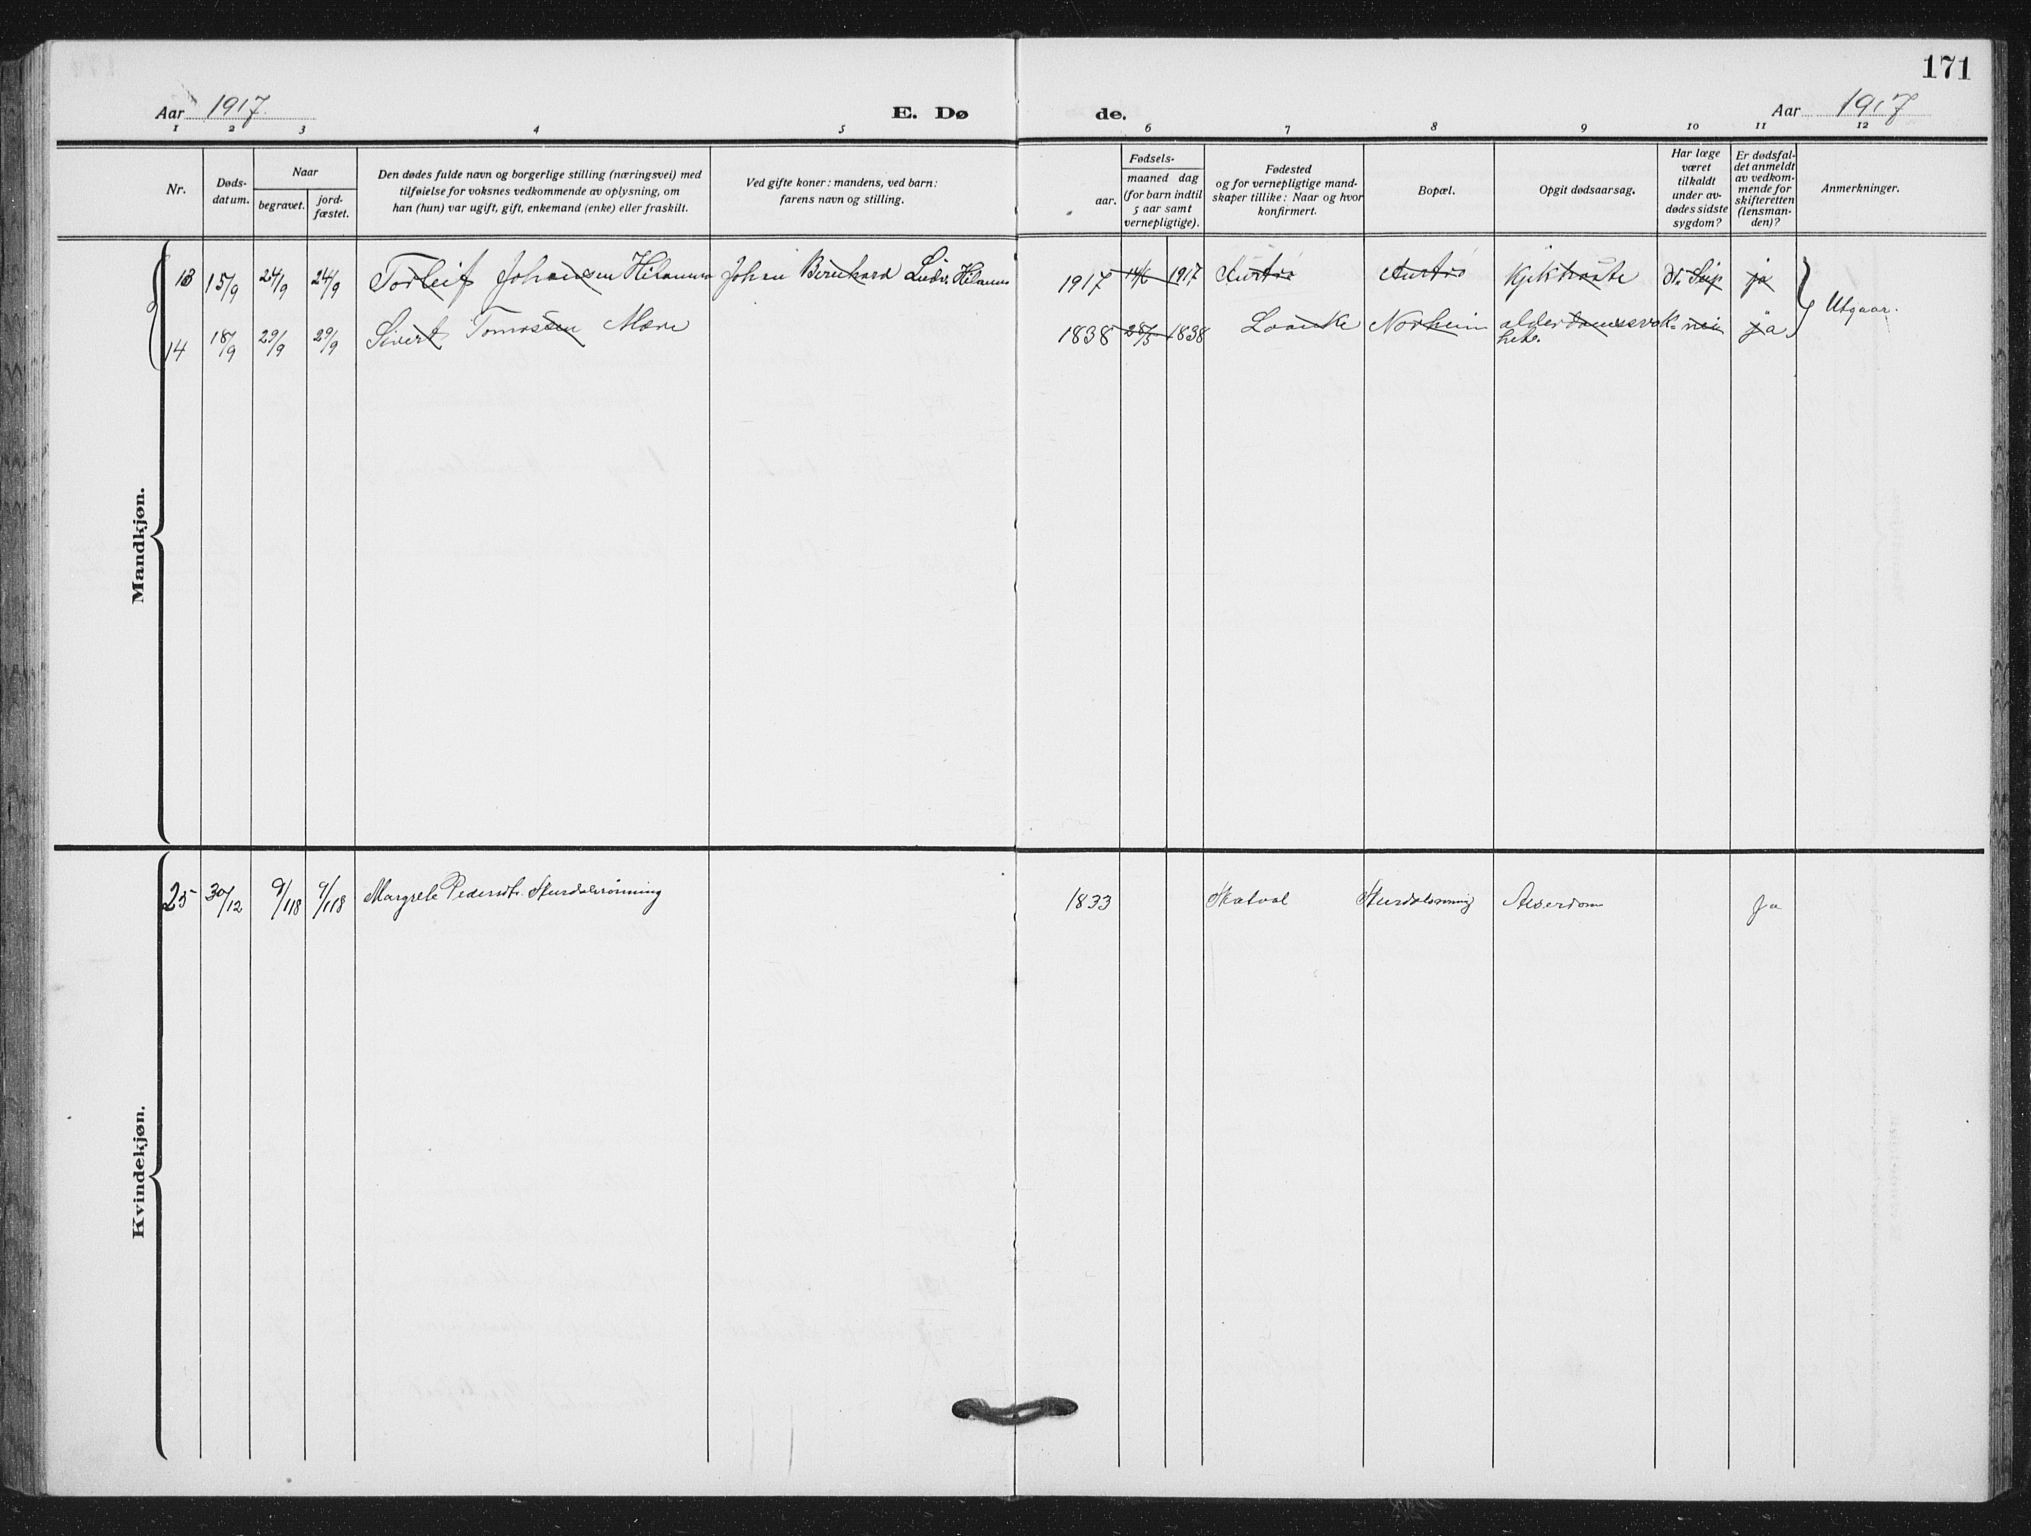 171
Aar 1917 E. Døde. Aar 1917
1 2 3 4 5 6 7 8 9 10 11 12
Nr.
Døds-
datum.
Naar
begravet.
jord-
fæstet.
Den dødes fulde navn og borgerlige stilling (næringsvei) med
tilføielse for voksnes vedkommende av oplysning, om
han (hun) var ugift, gift, enkemand (enke) eller fraskilt.
Ved gifte koner: mandens, ved barn:
farens navn og stilling.
Fødsels-
aar.
maaned dag
(for barn indtil
5 aar samt
vernepligtige).
Fødested
og for vernepligtige mand-
skaper tillike: Naar og hvor
konfirmert.
Bopæl.
Opgit dødsaarsag.
Har læge
været
tilkaldt
under av-
dødes sidste
sygdom?
Er dødsfal-
det anmeldt
av vedkom-
mende for
skifteretten
(lensman-
den)?
Anmerkninger.
Mandkjøn.
13 15/9 24/9 24/9 Torleif Johansen Johan Bernhard 1917 14/6 1917 kjekhoste ja
Utgaar.
14 18/9 29/9 29/9 Sivert Tomassen Mære 1838 1838 Laanke Norheim alderdomssvak- nei ja
hete.
Kvindekjøn.
25 30/12 9/118 9/118 Margrete Pedersdt. 1833 Skatval ja